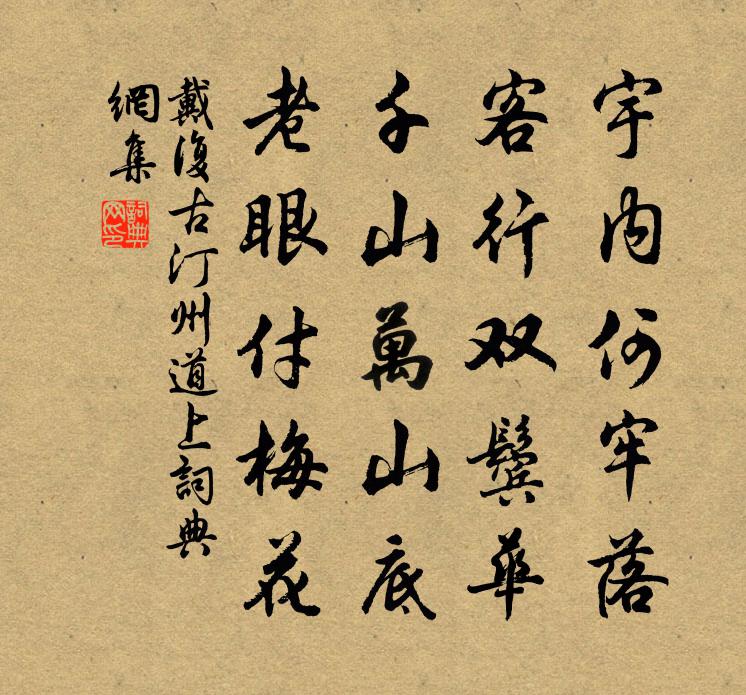 宇内何牢落
客行双鬓華
千山萬山底
老眼付梅花
戴復古汀州道上詞典
網集
詞典
网印